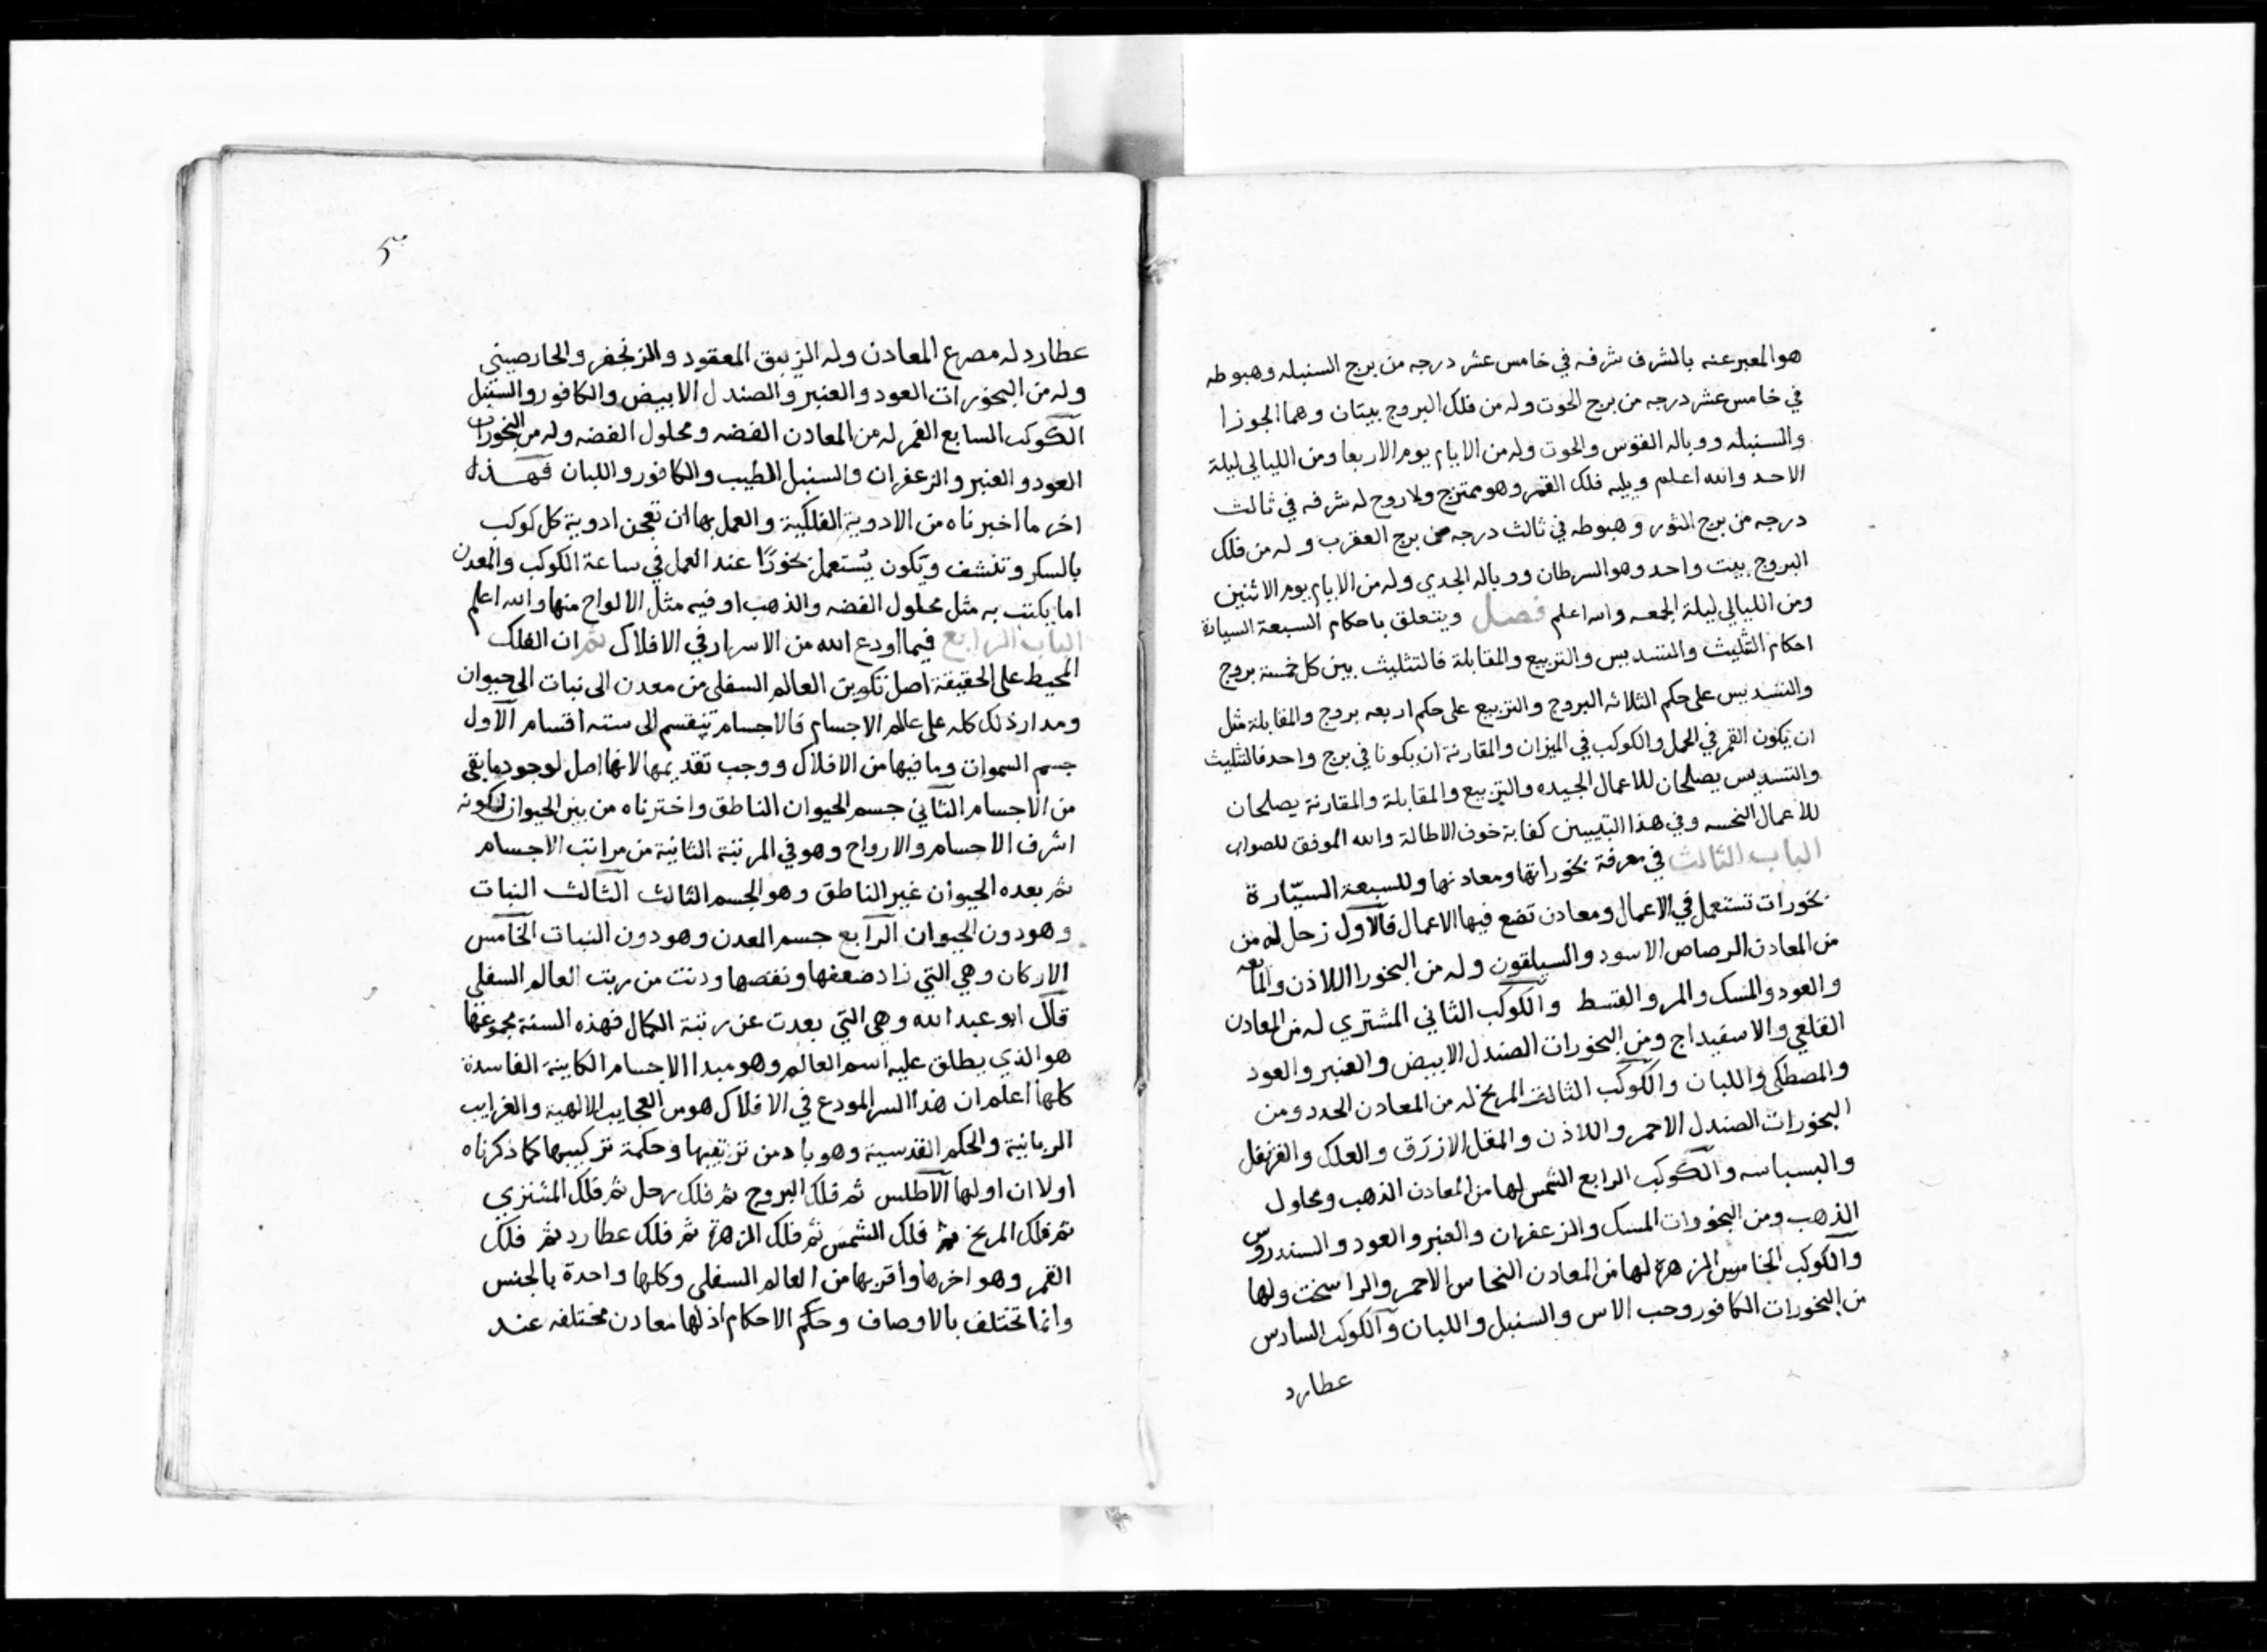 هو المعبر عنه بالشرف شرفه في خامس عشر درجه من برج السنبله وهبوطه
في خامس عشر درجه من برج الحوت وله من فلك البروج بيتان وهما الجوزا
والسنبله ووباله القوس والحوت وله من الايام يوم الاربعا ومن الليالي ليلة
الاحد والله اعلم ويليه فلك القمر وهو ممتزج ولا روح له شرفه في ثالث
درجه من برج الثور وهبوطه في ثالث درجه من برج العقرب وله من فلك
البروج بيت واحد وهو السرطان ووباله الجدي وله من الايام يوم الاثنين
ومن الليالي ليلة الجمعه والله اعلم فصل ويتعلق باحكام السبعة السيارة
احكام التثليث والتسديس والتربيع والمقابلة فالتثليث بين كل خمسة بروج
والتسديس على حكم الثلاثه البروج والتربيع على حكم اربعه بروج والمقابلة مثل
ان يكون القمر في الحمل والكوكب في الميزان والمقارنة ان يكونا في برج واحد فالتثليث
والتسديس يصلحان للاعمال الجيده والتربيع والمقابلة والمقارنة يصلحان
للاعمال النحسه وفي هذا التبيين كفاية خوف الاطالة والله الموفق للصواب
الباب الثالث في معرفة بخوراتها ومعادنها وللسبعة السيّارة
بخورات تستعمل في الاعمال ومعادن تضع فيها الاعمال فالآول زحل له من
من المعادن الرصاص الاسود والسيلقون وله من البخور اللاذن والمايعه
والعود والمسك والمر والقسط والكوكب الثاني المشتري له من المعادن
القلعي والاسفيداج ومن البخورات الصندل الابيض والعنبر والعود
والمصطكي واللبان والكوكب الثالث المريخ له من المعادن الحدد ومن
البخورات الصندل الاحمر واللاذن والمقل الازرق والعلك والقرنفل
والبسباسه والكوكب الرابع الشمس لها من المعادن الذهب ومحلول
الذهب ومن البخورات المسك والزعفران والعنبر والعود والسندروس
والكوكب الخامس الزهرة لها من المعادن النحاس الاحمر والراسخت ولها
من البخورات الكافور وحب الاس والسنبل واللبان والكوكب السادس
عطارد
عطارد له مصرع المعادن وله الزيبق المعقود والزنجفر والخارصيني
وله من البخورات العود والعنبر والصندل الابيض والكافور والسنبل
الكوكب السابع القمر له من المعادن الفضه ومحلول الفضه وله من البخورات
العود والعنبر والزعفران والسنبل الطيب والكافور واللبان فهذا
اخر ما اخبرناه من الادوية الفلكية والعمل بها ان تعجن ادوية كل كوكب
بالسكر وتنشف وتكون يُستعمل بخورًا عند العمل في ساعة الكوكب والمعدن
اما يكتب به مثل محلول الفضه والذهب او فيه مثل الالواح منها والله اعلم
الباب الرابع فيما اودع الله من الاسرار في الافلاك ثم ان الفلك
المحيط على الحقيقة اصل تكوين العالم السفلي من معدن الى نبات الى حيوان
ومدار ذلك كله على عالم الاجسام فالاجسام تنقسم الى سته اقسام الآول
جسم السموات وما فيها من الافلاك ووجب تقديمها لانها اصل لوجود ما بقي
من الاجسام الثاني جسم الحيوان الناطق واخترناه من بين الحيوان لكونه
اشرف الاجسام والارواح وهو في المرتبة الثانية من مراتب الاجسام
ثم بعده الحيوان غير الناطق وهو الجسم الثالث الثالث النبات
وهو دون الحيوان الرابع جسم المعدن وهو دون النبات الخامس
الاركان وهي التي زاد ضعفها ونقصها ودنت من رتبت العالم السفلي
قال ابو عبد الله وهي التي بعدت عن رتبة الكمال فهذه الستة مجموعها
هو الذي يطلق عليه اسم العالم وهو مبدا الاجسام الكاينة الفاسدة
كلها اعلم ان هذا السر المودع في الافلاك هو من العجايب الالهية والغرايب
الربانية والحكم القدسية وهو باد من ترتيبها وحكمة تركيبها كما ذكرناه
اولا ان اولها الآطلس ثم فلك البروج ثم فلك زحل ثم فلك المشتري
ثم فلك المريخ ثم فلك الشمس ثم فلك الزهرة ثم فلك عطارد ثم فلك
القمر وهو اخرها واقربها من العالم السفلي وكلها واحدة بالجنس
وانما تختلف بالاوصاف وحكم الاحكام اذ لها معادن مختلفه عند